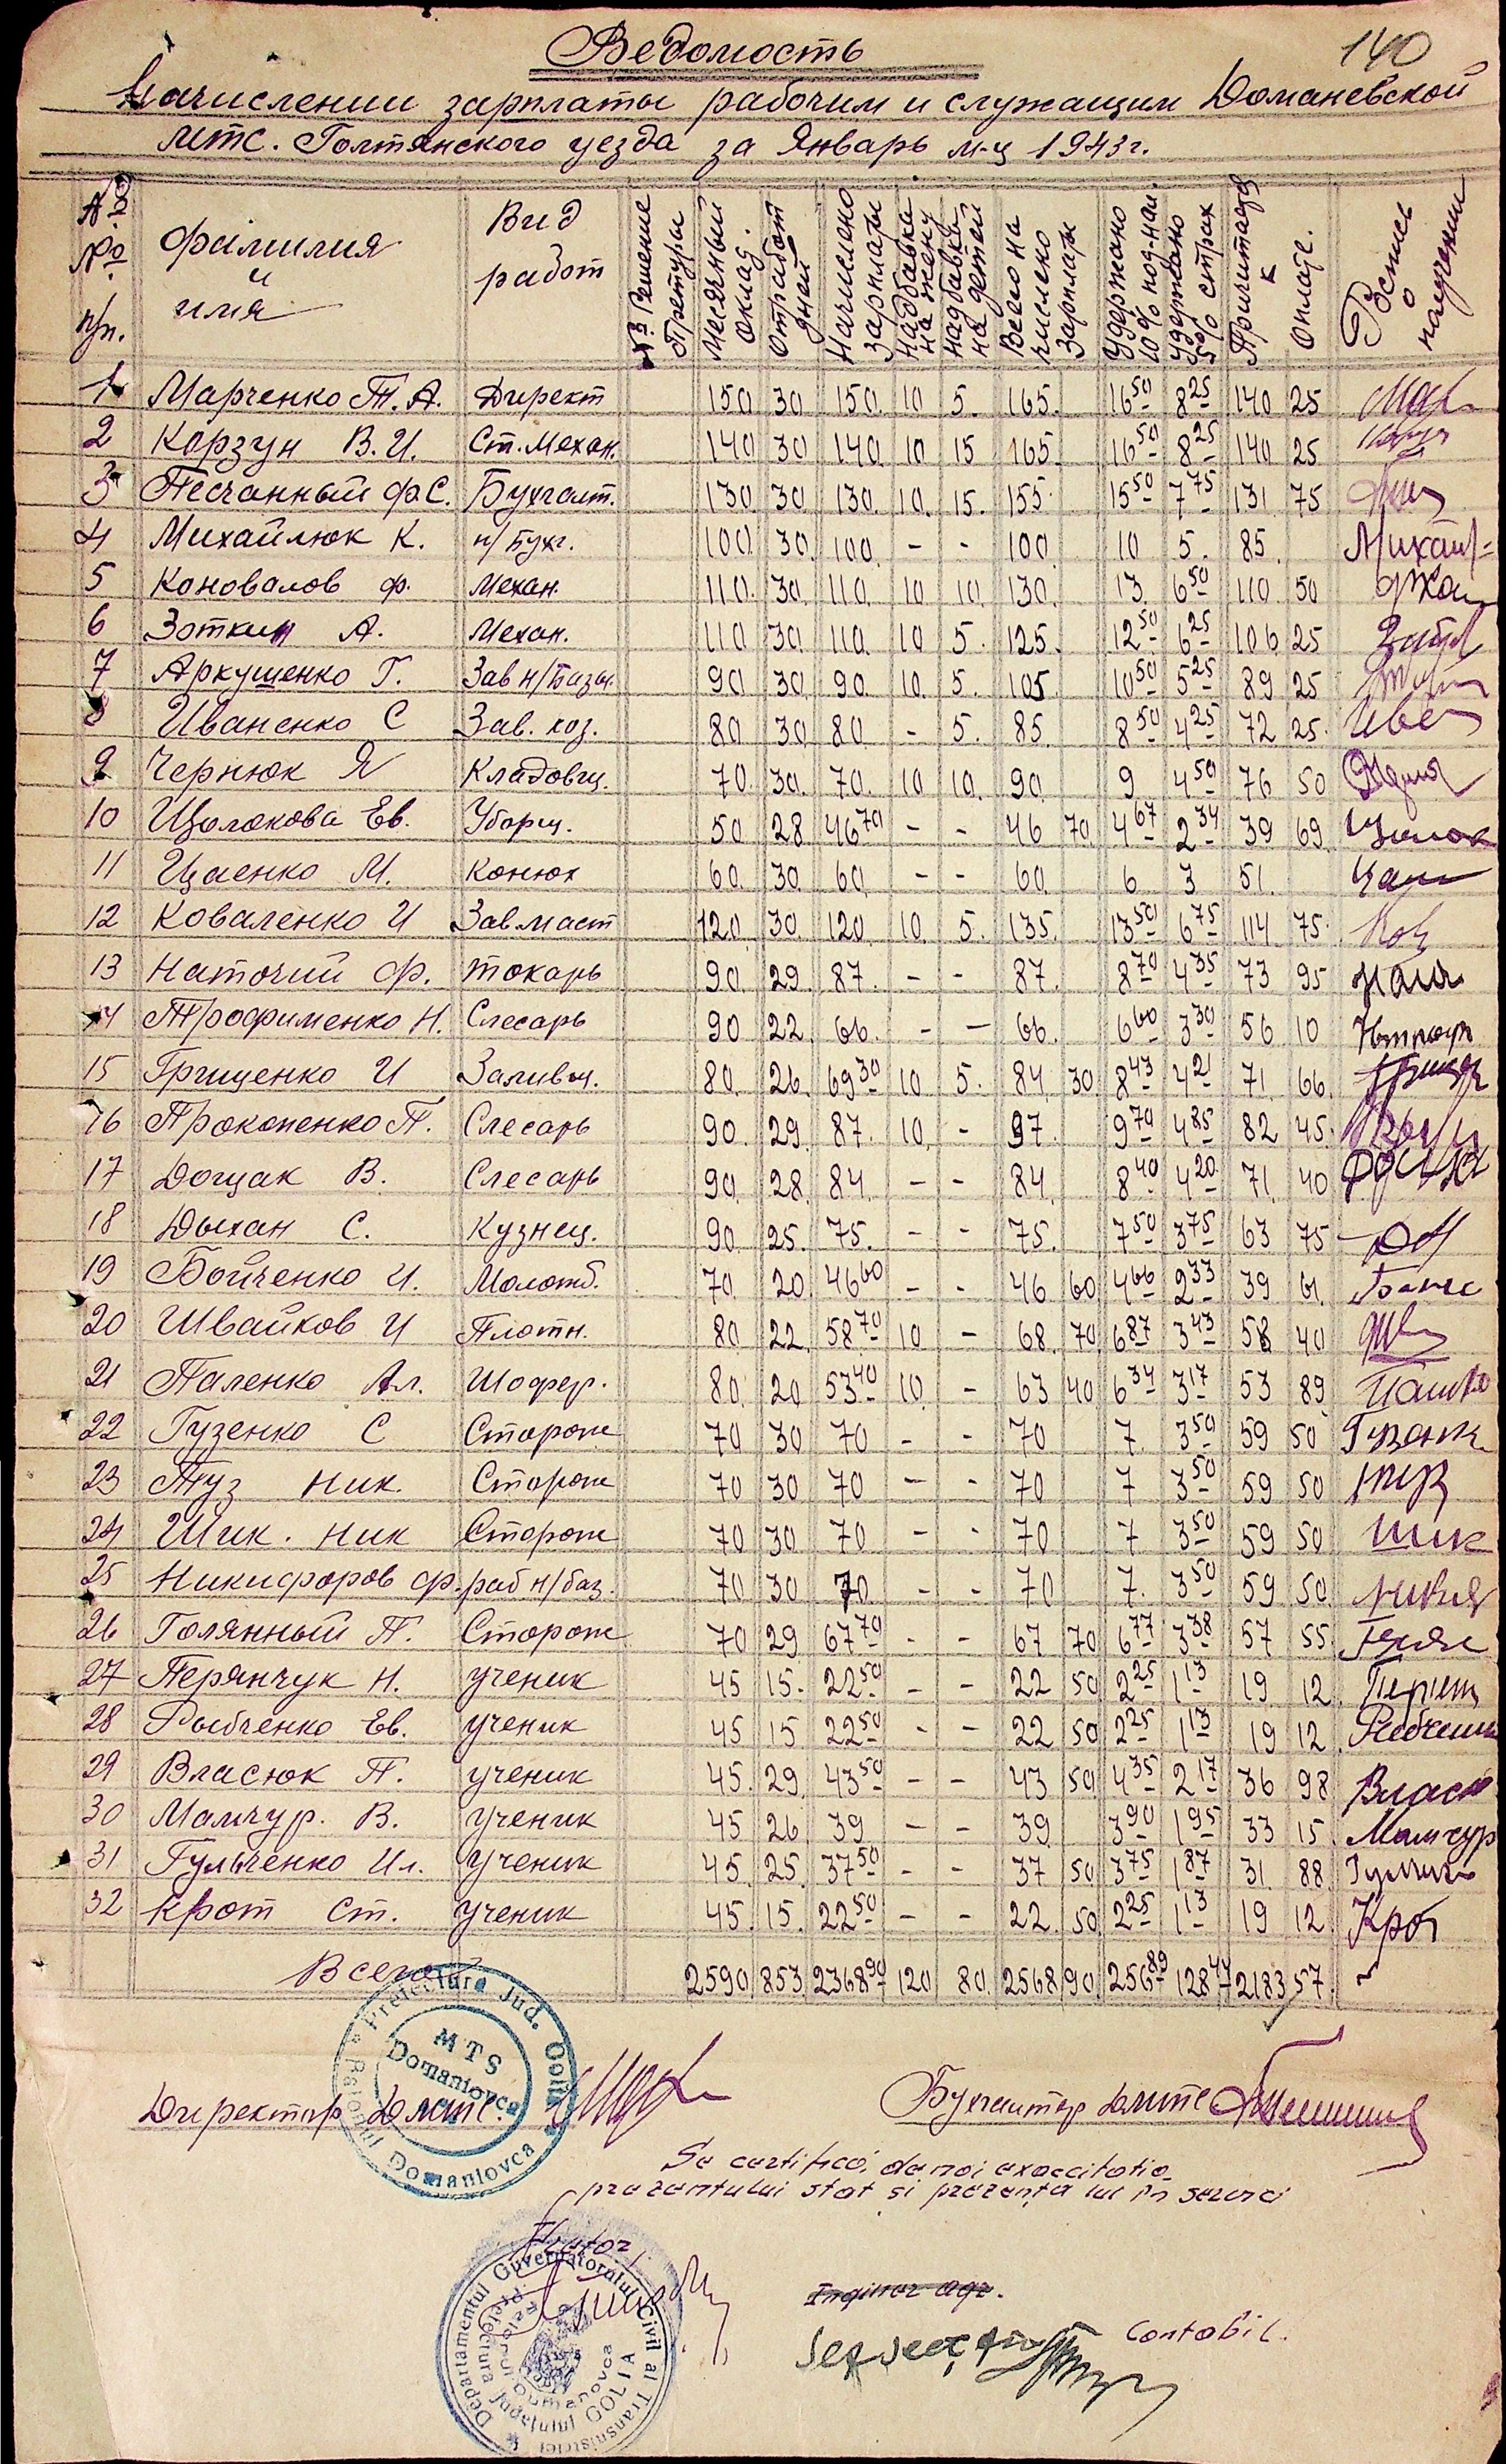 140
Ведомость
Начислении зарплаты рабочим и служащим Доманевской
мтс. Голтянского уезда за Январь м-ц 1943 г.
№№ п/п. Фамилия и имя Вид работ № Решение Претуры Месячный оклад. Отработ дней Начислено зарплаты Надбавка на жену надбавка на детей Всего на числено зарплаты Удержано 10% под-нал. удержано 5% страх Причитается к оплате. Роспись о получении
1 Марченко Т. А. Директ 150 30 150. 10 5. 165. 16 50 8 25 140 25
2 Корзун В. И. Ст. Механ. 140 30 140 10 15 165. 16 50 8 25 140 25
3 Песчанный Ф.С. Бухгалт. 130 30 130. 10. 15. 155. 15 50 7 75 131 75
4 Михайлюк К. п/Бухг. 100. 30. 100. - - 100. 10 5. 85. Михайл
5 Коновалов Ф. Механ. 110. 30. 110. 10 10. 130. 13. 6 50 110 50
6 Зоткин А. Механ. 110 30 110. 10 5. 125. 12 50 6 25 106 25
7 Аркушенко Г. Зав н/Базы. 90 30 90. 10. 5. 105 10 50 5 25 89 25
8 Иваненко С Зав. хоз. 80 30 80 - 5. 85. 8 50 4 25 72 25.
9 Чернюк Я Кладовщ. 70. 30. 70. 10 10. 90. 9 4 50 76 50
10 Щолокова Ев. Уборщ. 50 28 46 70 - - 46 70 4 67 2 34 39 69
11 Цаенко М. Конюх 60. 30. 60. - - 60. 6 3 51.
12 Коваленко И Зав маст 120. 30. 120. 10. 5. 135. 13 50 6 75 114 75. Ков
13 Наточий Ф. токарь 90. 29. 87. - - 87. 8 70 4 35 73 95
14 Трофименко Н. Слесарь 90 22. 66. - - 66. 6 60 3 30 56 10
15 Грищенко И Заливщ. 80. 26. 69 30 10 5. 84 30 8 43 4 21 71 66.
16 Прокопенко П. Слесарь 90. 29. 87. 10. - 97. 9 70 4 85 82 45.
17 Дощак В. Слесарь 90. 28. 84. - - 84. 8 40 4 20 71. 40
18 Дыхан С. Кузнец. 90. 25. 75. - - 75. 7 50 3 75 63 75
19 Бойченко И. Молотб. 70. 20 46 60 - - 46 60 4 66 2 33 39 61.
20 Швайков И Плотн. 80 22. 58 70 10 - 68. 70 6 87 3 43 58 40
21 Паленко Ал. Шофер. 80. 20 53 40 10 - 63 40 6 34 3 17 53 89
22 Гузенко С Сторож 70 30 70 - - 70 7. 3 50 59 50
23 Туз Ник. Сторож 70 30 70 - - 70 7 3 50 59 50
24 Шик. Ник Сторож 70 30 70 - - 70 7 3 50 59 50 Шик
25 Никифоров Ф. раб н/баз. 70 30 70 - - 70 7. 3 50 59 50
26 Голянный П. Сторож 70 29 67 70 - - 67 70 6 77 3 38 57 55
27 Перянчук Н. ученик 45 15. 22 50 - - 22 50 2 25 1 13 19 12.
28 Рыбченко Ев. ученик 45 15 22 50 - - 22 50 2 25 1 13 19 12
29 Власюк П. ученик 45. 29. 43 50 - - 43 50 4 35 2 17 36 98 Власю
30 Мамчур. В. ученик 45 26 39 - - 39 3 90 1 95 33 15. Мамчур
31 Гульченко Ил. ученик 45. 25 37 50 - - 37 50 3 75 1 87 31. 88.
32 Крот Ст. ученик 45. 15. 22 50 - - 22 50 2 25 1 13 19 12. Кро
Всего 2590 853 2368 90 120 80 2568 90 256 89 128 44 2183 57.
Prefectura Jud. Golta * Raionul Domaniovca *
MTS
Domaniovca
Директор Дмтс.
Бухгалтер Дмтс
Se certifică de noi exactitatea
prezentului stat si prezenta lui în servici
Pretor,
Departamentul Guvernatorului Civil al Transnistriei
Prefectura Județului GOLTA
Inginer agr.
Contabil.